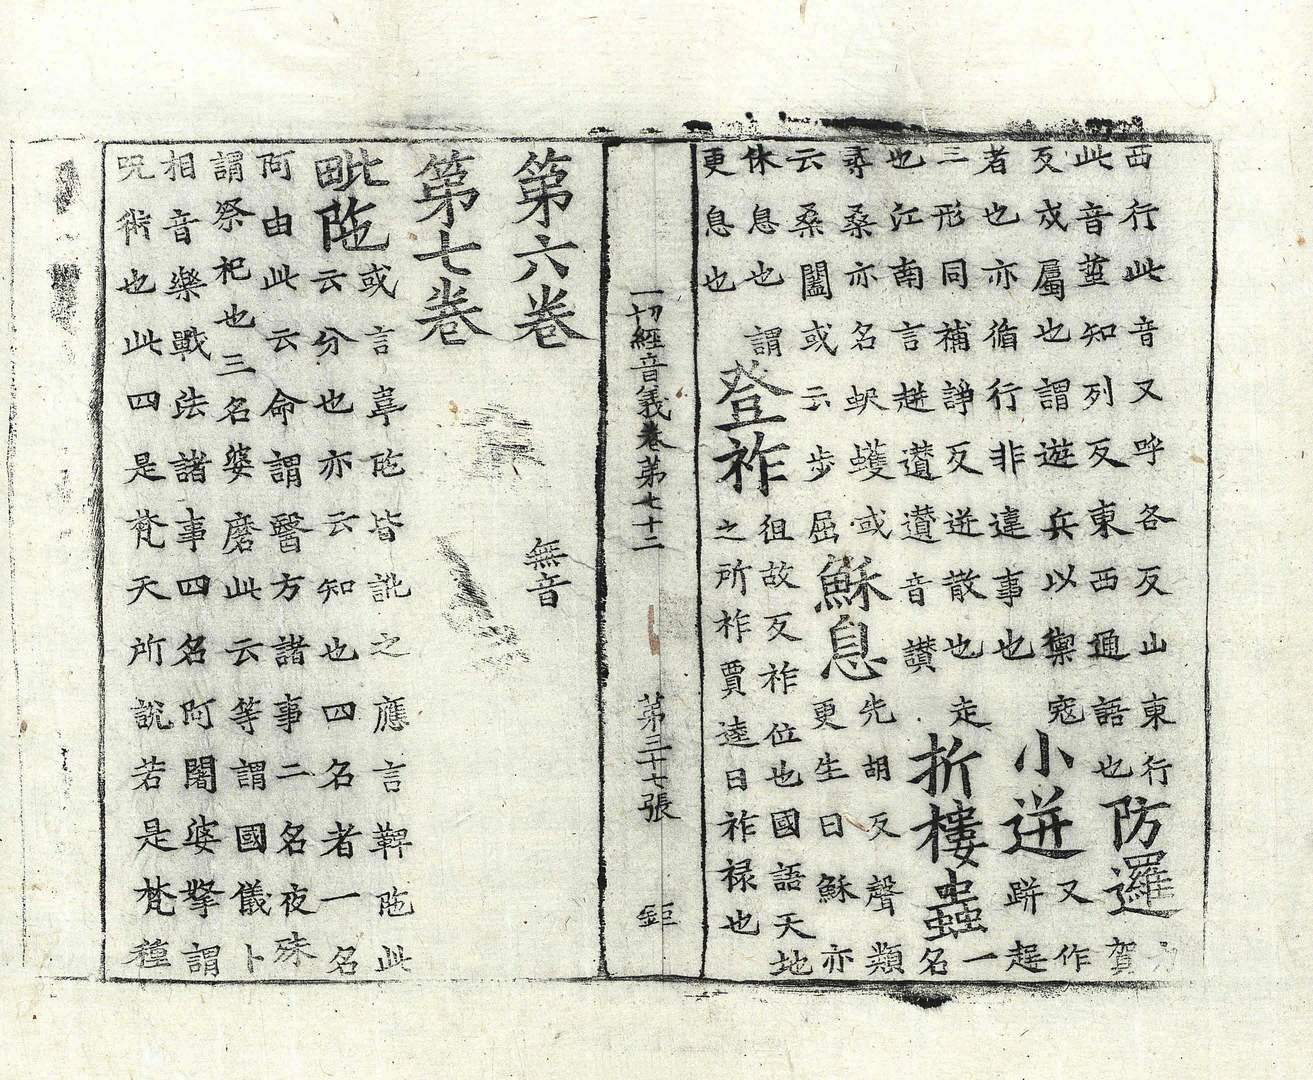 西行此音又呼各反山東行
此音䓆知列反東西通語也
防邏
力
賀
反戍屬也謂遊兵以禦寇
者也亦循行非違事也
小迸
又作
跰起
三形同補諍反迸散也走
也江南言趌音讚
折樓蟲
一
名
尋桑亦名蚇蠖或
云桑闔或云步屈
穌息
先胡反聲類
更生曰穌亦
休息也謂
更息也
登祚
徂故反祚位也國語天地
之所祚賈逵曰祚禄也
一切經音義卷第七十二 第三十七張 鉅
第六卷 無音
第七卷
毗陁
或言韋陁皆訛之應言鞞陁此
云分也亦云知也四名者一名
阿由此云命謂醫方諸事二名夜殊
謂祭祀也三名婆磨此云等謂國儀卜
相音樂戰法諸事四名阿闍婆拏謂
呪術也此四是梵天所說若是梵種